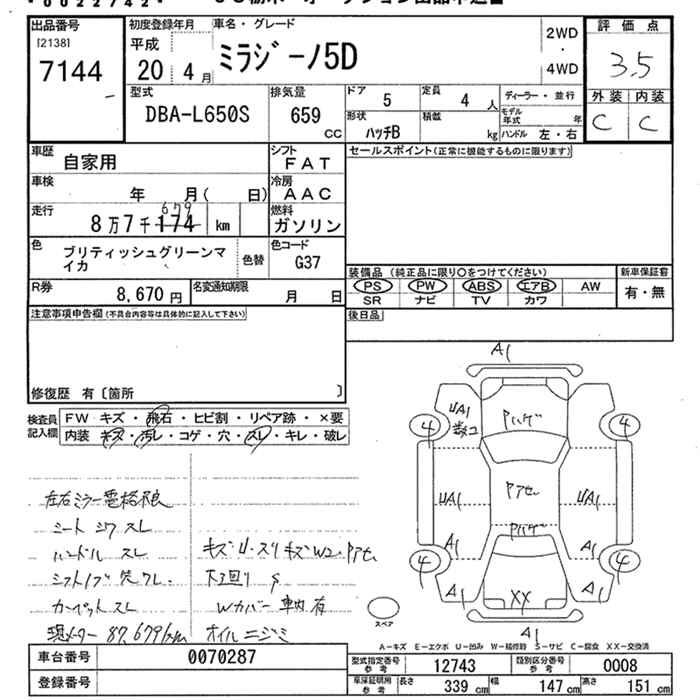 0022742
出品番号
[2138]
7144
初度登録年月
平成
20 4月
車名・グレード
ミラジーノ5D
2WD
・
4WD
評価点
3.5
外装 内装
C C
型式
DBA-L650S
排気量
659
CC
ドア
5
定員
4 人
形状
ハッチB
積載
kg
ディーラー・並行
モデル年式 年
ハンドル 左・右
車歴 自家用
シフト FAT
セールスポイント(正常に機能するものに限ります)
車検 年 月( 日)
冷房 AAC
走行 8万7千174 km
679
燃料 ガソリン
色 ブリティッシュグリーンマイカ
色替
色コード G37
装備品 (純正品に限り○をつけてください)
PS PW ABS エアB AW
SR ナビ TV カワ
新車保証書
有・無
R券 8,670円
名変通知期限 月 日
後日品
注意事項申告欄(不具合内容等は具体的に記入して下さい)
修復歴 有〔箇所 〕
検査員記入欄
FW キズ・飛石・ヒビ割・リペア跡・×要
内装 キズ・汚レ・コゲ・穴・スレ・キレ・破レ
左右ミラー電格不良
シート シワ スレ
ハンドル スレ
シフトノブ
カーペット スレ
現メーター 87,679km
キズ・U・スリキズ W2・Pアセ
下回り S
Wカバー 車内有
オイルニジミ
A1
UA1
Pハゲ
4
4
UA1
Pアセ
UA1
Pハゲ
A1
A1
4
4
A1
XX
A1
A1
スペア
A-キズ E-エクボ U-凹み W-補修跡 S-サビ C-腐食 XX-交換済
車台番号 0070287
登録番号
型式指定番号 参考 12743
類別区分番号 参考 0008
車庫証明用 参考
長さ 339 cm
幅 147 cm
高さ 151 cm